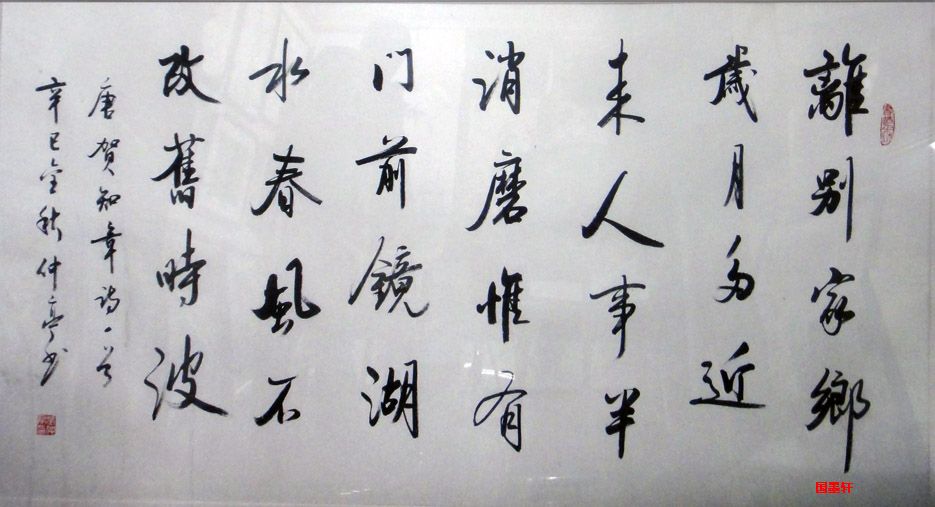 離别家鄉
歲月多近
来人事半
消磨惟有
门前鏡湖
水春風不
改舊時波
唐贺知章诗一首
辛巳金秋仲亭书
国墨轩